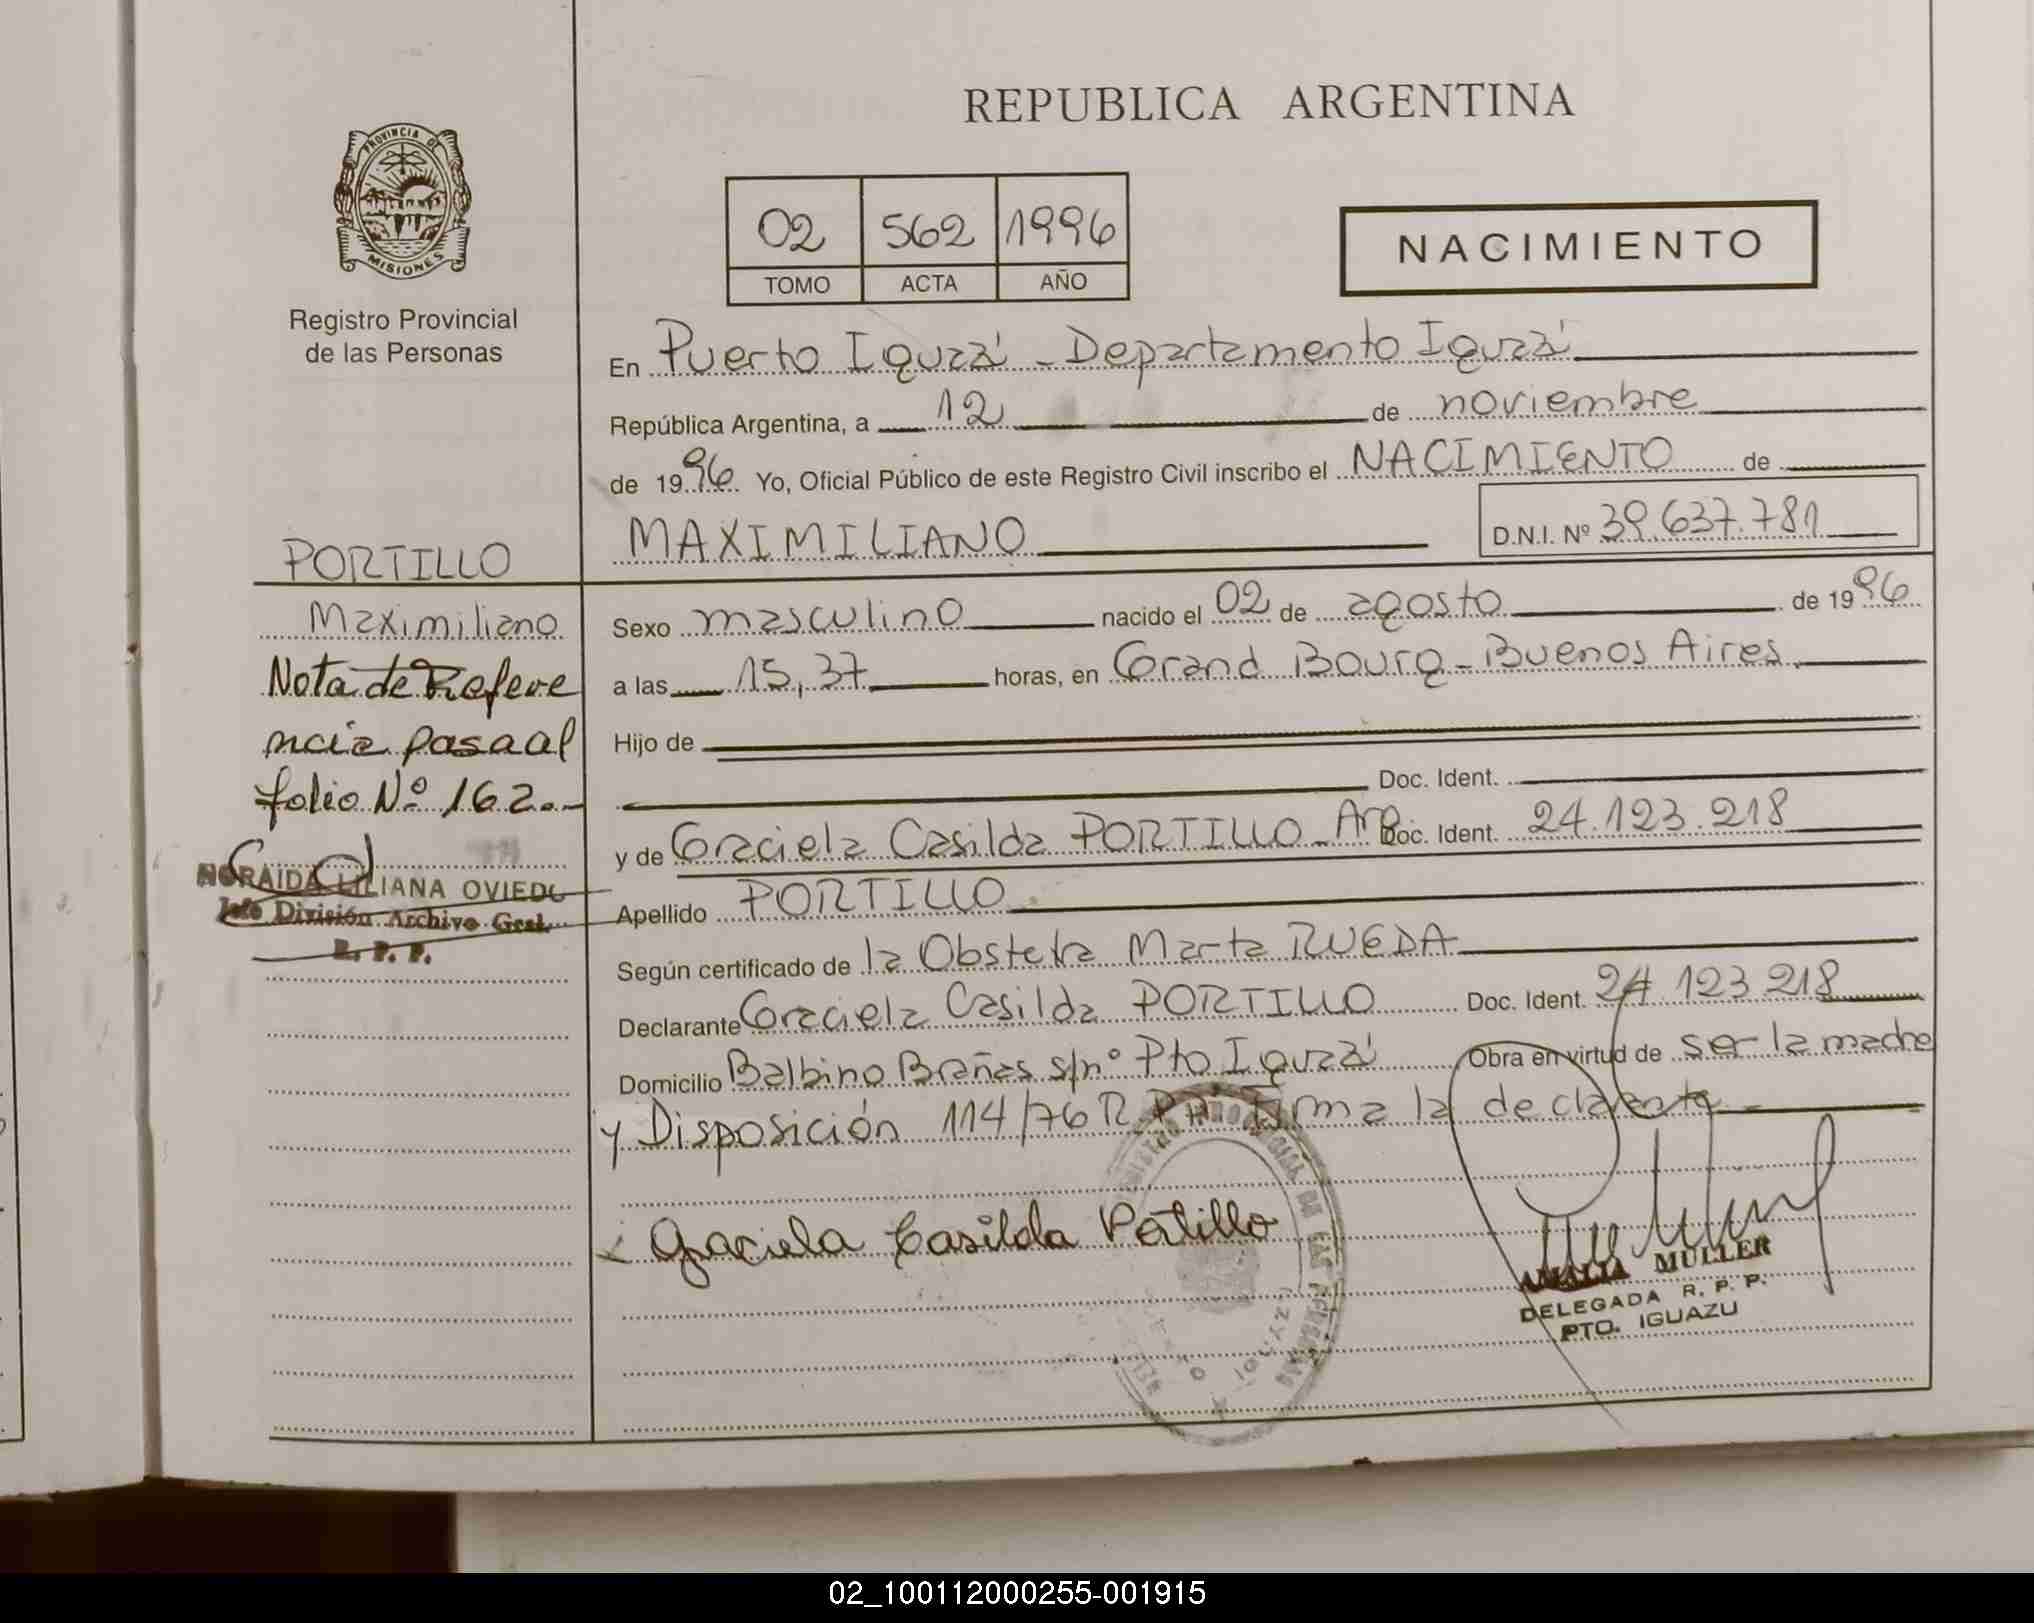 REPUBLICA ARGENTINA
PROVINCIA DE
MISIONES
Registro Provincial
de las Personas
02 562 1996
TOMO ACTA AÑO
NACIMIENTO
En Puerto Iguazú - Departamento Iguazú
República Argentina, a 12 de noviembre
de 1996. Yo, Oficial Público de este Registro Civil inscribo el NACIMIENTO de
MAXIMILIANO D.N.I. Nº 39.637.781
PORTILLO
Maximiliano
Nota de Refere
ncia pasa al
folio Nº 162.-
NORAIDA LILIANA OVIEDO
Jefe División Archivo Gral.
R. P. P.
Sexo masculino nacido el 02 de agosto de 1996
a las 15,37 horas, en Grand Bourg - Buenos Aires
Hijo de
Doc. Ident.
y de Graciela Casilda PORTILLO - Arg Doc. Ident. 24.123.218
Apellido PORTILLO
Según certificado de la Obstetra Marta RUEDA
Declarante Graciela Casilda PORTILLO Doc. Ident. 24.123.218
Domicilio Balbino Brañas s/nº Pto Iguazú Obra en virtud de ser la madre
y Disposición 114/76 R.P.P. Firma la declarante -
Graciela Casilda Portillo
AMALIA MULLER
DELEGADA R. P. P.
PTO. IGUAZU
02_100112000255-001915